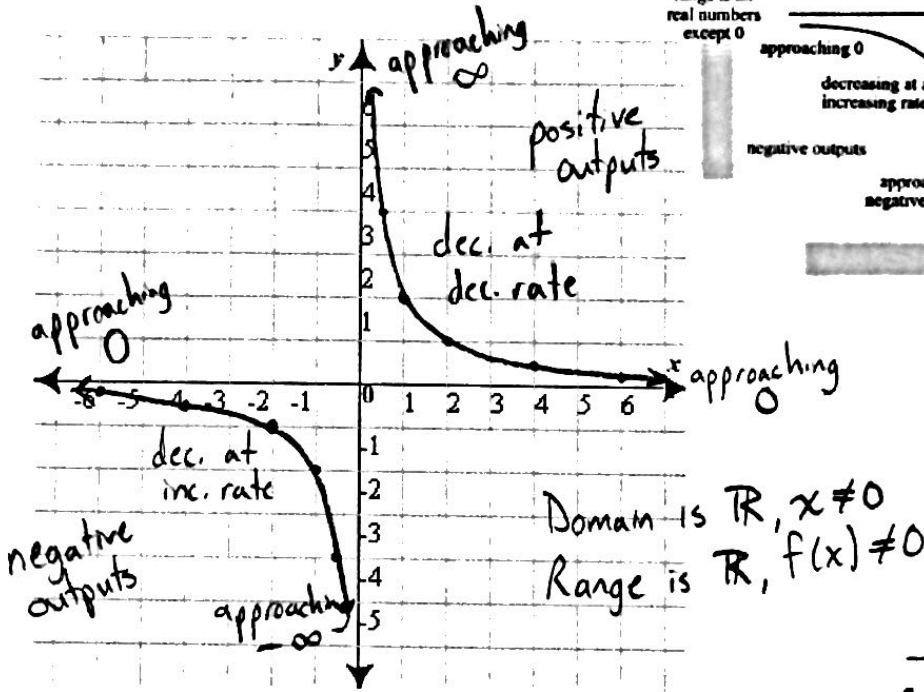 real numbers
except 0
approaching 0
decreasing at
increasing rate
negative outputs
negative
y
approaching
∞
positive
outputs
5
4
3
2
1
dec. at
dec. rate
approaching
0
x
approaching
0
-6 -5 -4 -3 -2 -1 0 1 2 3 4 5 6
-1
-2
-3
-4
-5
dec. at
inc. rate
negative
outputs
approaching
-∞
Domain is ℝ, x ≠ 0
Range is ℝ, f(x) ≠ 0